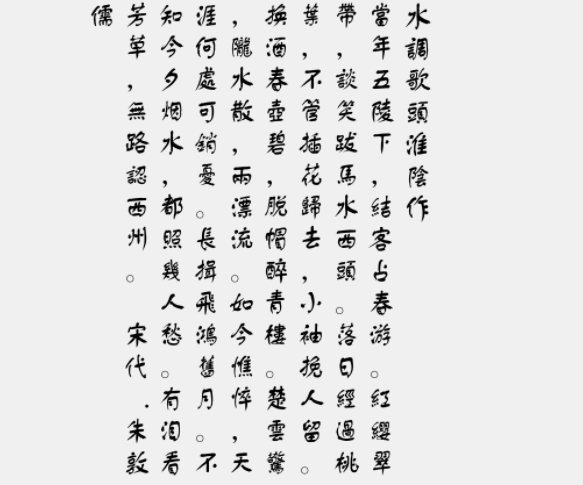 水調歌頭淮陰作
當年五陵下,結客占春游。紅纓翠
帶,談笑跋馬水西頭。落日經過桃
葉,不管插花歸去,小袖挽人留。
換酒春壺碧,脫帽醉青樓。楚雲驚
,隴水散,兩漂流。如今憔悴,天
涯何處可銷憂。長揖飛鴻舊月。不
知今夕烟水,都照幾人愁。有泪看
芳草,無路認西州。 宋代.朱敦
儒